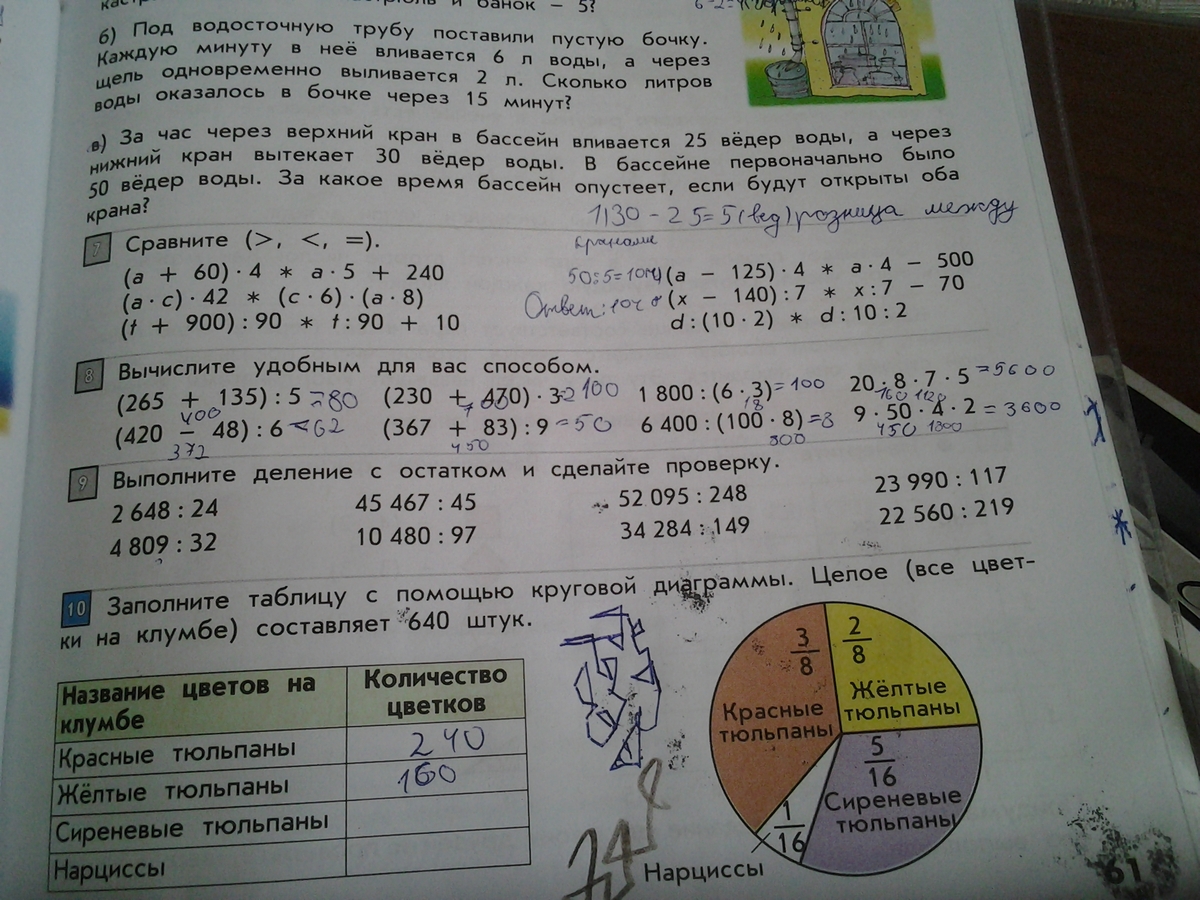 и банок – 5?
б) Под водосточную трубу поставили пустую бочку.
Каждую минуту в неё вливается 6 л воды, а через
щель одновременно выливается 2 л. Сколько литров
воды оказалось в бочке через 15 минут?
в) За час через верхний кран в бассейн вливается 25 вёдер воды, а через
нижний кран вытекает 30 вёдер воды. В бассейне первоначально было
50 вёдер воды. За какое время бассейн опустеет, если будут открыты оба
крана?
1)30 - 25=5(вед) розница между
кранами
50:5=10(ч)
Ответ: 10ч
7 Сравните (>, <, =).
(a + 60) · 4 * a · 5 + 240
(a − 125) · 4 * a · 4 − 500
(a · c) · 42 * (c · 6) · (a · 8)
(x − 140) : 7 * x : 7 − 70
(t + 900) : 90 * t : 90 + 10
d : (10 · 2) * d : 10 : 2
8 Вычислите удобным для вас способом.
(265 + 135) : 5 =80
400
(230 + 470) · 3=2100
700
1 800 : (6 · 3)=100
18
20 · 8 · 7 · 5 =5600
160 1120
(420 − 48) : 6 =62
372
(367 + 83) : 9 =50
450
6 400 : (100 · 8)=8
800
9 · 50 · 4 · 2 = 3600
450 1800
9 Выполните деление с остатком и сделайте проверку.
2 648 : 24
45 467 : 45
52 095 : 248
23 990 : 117
4 809 : 32
10 480 : 97
34 284 : 149
22 560 : 219
10 Заполните таблицу с помощью круговой диаграммы. Целое (все цвет-
ки на клумбе) составляет 640 штук.
Название цветов на клумбе
Количество цветков
Красные тюльпаны 240
Жёлтые тюльпаны 160
Сиреневые тюльпаны
Нарциссы
3/8
Красные
тюльпаны
2/8
Жёлтые
тюльпаны
5/16
Сиреневые
тюльпаны
1/16
Нарциссы
61